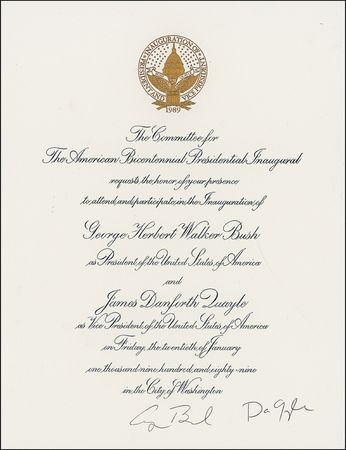 INAUGURATION OF
PRESIDENT AND
VICE PRESIDENT
1989
The Committee for
The American Bicentennial Presidential Inaugural
requests the honor of your presence
to attend and participate in the Inauguration of
George Herbert Walker Bush
as President of the United States of America
and
James Danforth Quayle
as Vice President of the United States of America
on Friday, the twentieth of January
one thousand nine hundred and eighty-nine
in the City of Washington